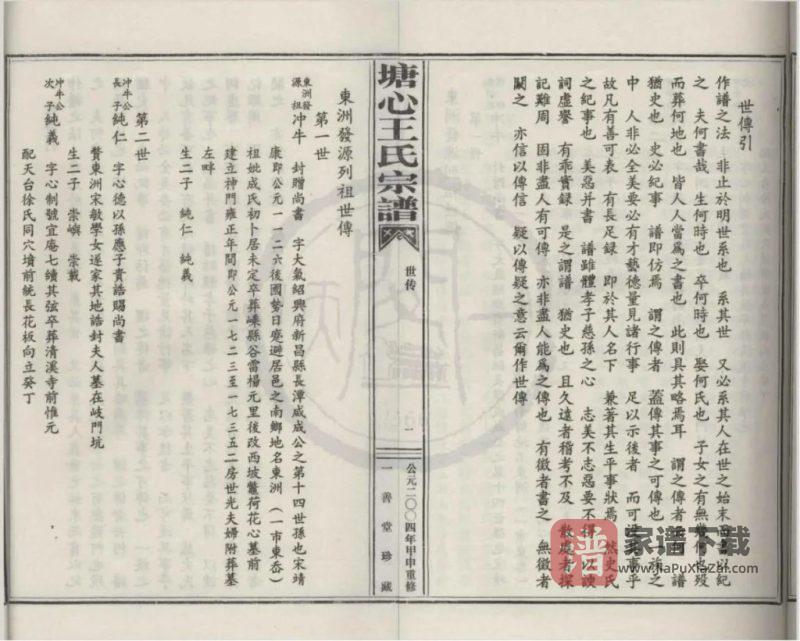 世傳引
作譜之法　非止於明世系也　系其世　又必系其人在世之始末而書以紀
之　夫何書哉　生何時也　卒何時也　娶何氏也　子女之有無幾何也歿
而葬何地也　皆人人當爲之書也　此則具其略焉耳　謂之傳者　譜
猶史也　史必紀事　譜即仿焉　謂之傳者　蓋傳其事之可傳也　詠之
中　人非必全美要必有才藝德量見諸行事　足以示後者　而可沒其事乎
故凡有善可表　有長足録　即於其人名下　兼著其生平事狀焉　然史氏
之紀事也　美惡并書　譜雖體孝子慈孫之心　志美不志惡要不得以諛
詞虛譽　有乖實録　是之謂譜　猶史也　且久遠者稽考不及　散處者採
記難周　因非盡人有可傳　亦非盡人能爲之傳也　有徵者書之　無徵者
闕之　亦信以傳信　疑以傳疑之意云爾作世傳
塘心王氏宗譜
世传
一
公元二〇〇四年甲申重修
一善堂珍藏
東洲發源列祖世傳
第一世
東洲發源祖 冲牛　封贈尚書　字大氣紹興府新昌縣長潭咸成公之第十四世孫也宋靖
康即公元一一二六後國勢日蹙避居邑之南鄉地名東洲（一市東岙）
祖妣成氏初卜居未定卒葬嵊縣谷雷楊元里後改西坡鼈荷花心墓前
建立神門雍正年間即公元一七二三至一七三五二房世光夫婦附葬墓
左畔
生二子　純仁　純義
第二世
冲牛公長子 純仁　字心德以孫應子貴誥賜尚書
贅東洲宋敏學女遂家其地誥封夫人墓在岐門坑
生二子　崇嶼　崇載
冲牛公次子 純義　字心制號宜庵七續其弦卒葬清溪寺前惟元
配天台徐氏同穴墳前統長花板向立癸丁
普
家谱下载
www.jiaPuXiaZai.com